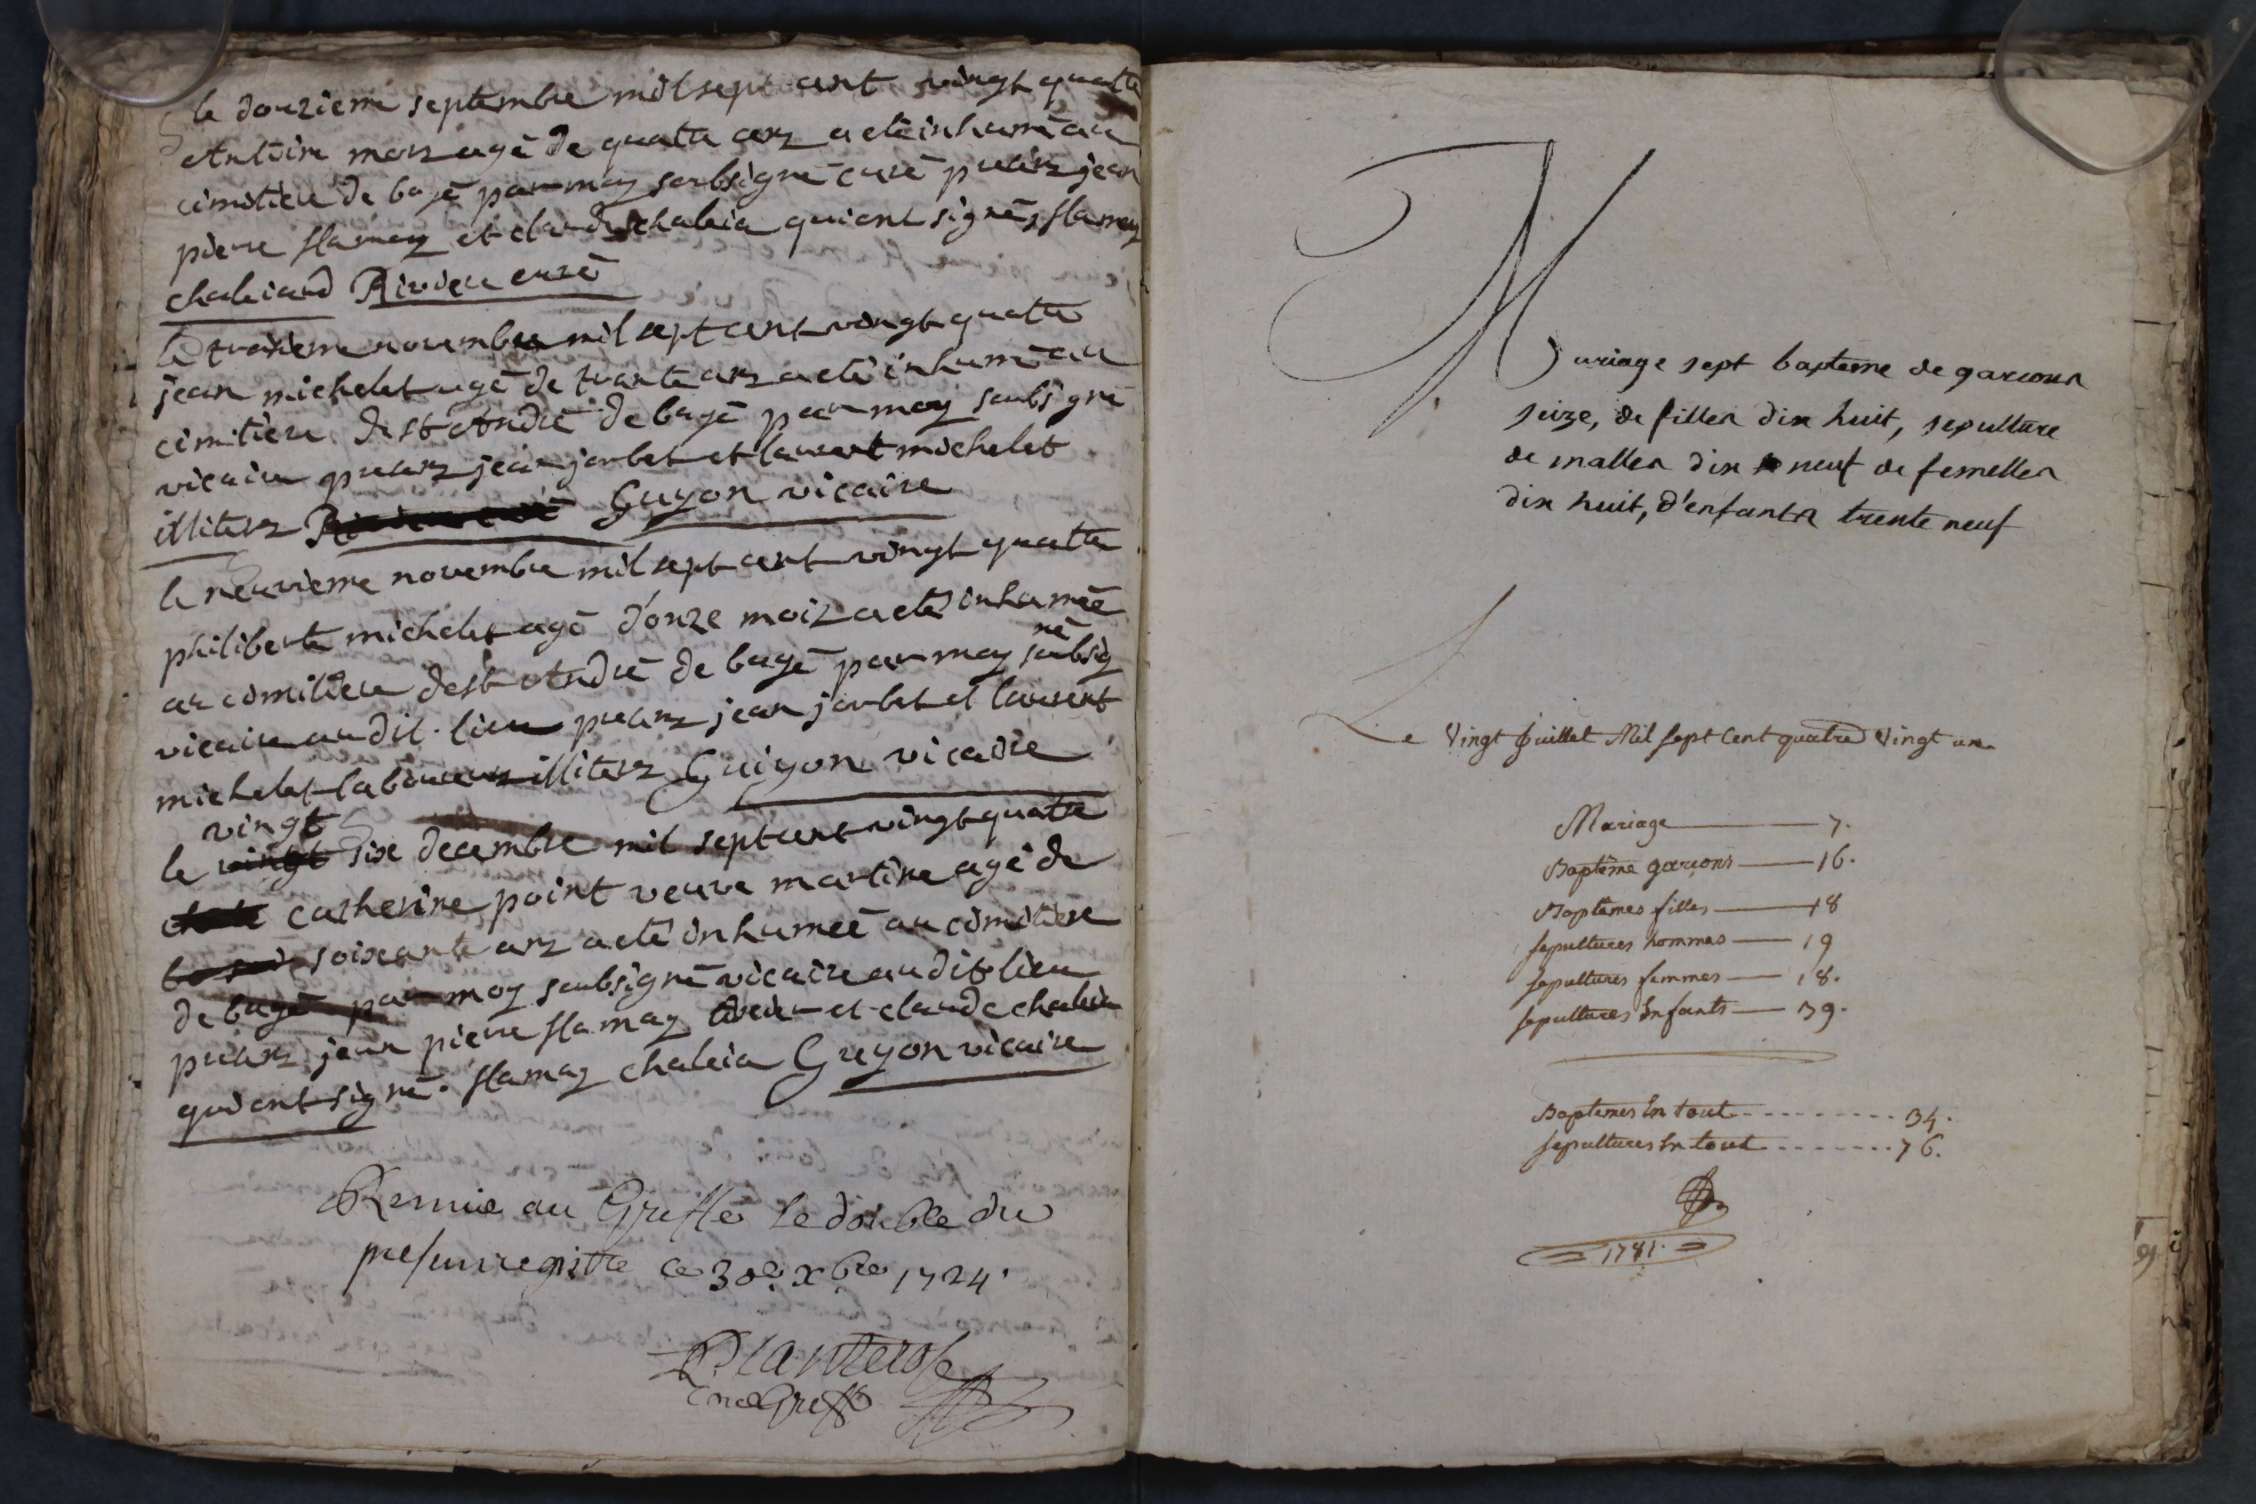 le douzieme septembre mil sept cent vingt quatre
Antoine morz agé de quatre anz a eté inhumé au
cimitiere de bagé par moy soubsigné curé presenz jean
pierre flamay et claude chabeia qui ont signéz flamay
chabeiard Riviere curé
le troisieme novembre mil sept cent vingt quatre
jean michelet agé de trante anz a eté inhumé au
cimitiere de st Andre de bagé par moy soubsigné
vicaire presenz jean jorbet et laurent michelet
illiterz Guyon vicaire
le neuvieme novembre mil sept cent vingt quatre
philiberte michelet agé d'onze moiz a eté inhumée
au cimitiere de st Andre de bagé par moy soubsig
né
vicaire au dit lieu presenz jean jorbet et laurent
michelet laboureurz illiterz Guyon vicaire
vingt
le vingt sixe decembre mil sept cent vingt quatre
catherine point veuve martine agé de
soixante anz a eté inhumeé au cimitiere
de bagé par moy soubsigné vicaire au dit lieu
presenz jean pierre flamay et claude chabeia
qui ont signé. flamay chabeia Guyon vicaire
Remie au Greffe le double du
present registre ce 30e. xbre 1724.
Planterose
Cme Greff
Mariage sept bapteme de garcons
seize, de filles dix huit, sepulture
de malles dix neuf de femelles
dix huit, d'enfants trente neuf
Le Vingt Juillet Mil sept Cent quatre Vingt un
Mariage 7.
Baptême garçons 16.
Baptêmes filles 18
sepultures hommes 19
sepultures femmes 18.
sepultures Enfants 39.
Baptemes En tout 34.
sepultures En tout 76.
1781.